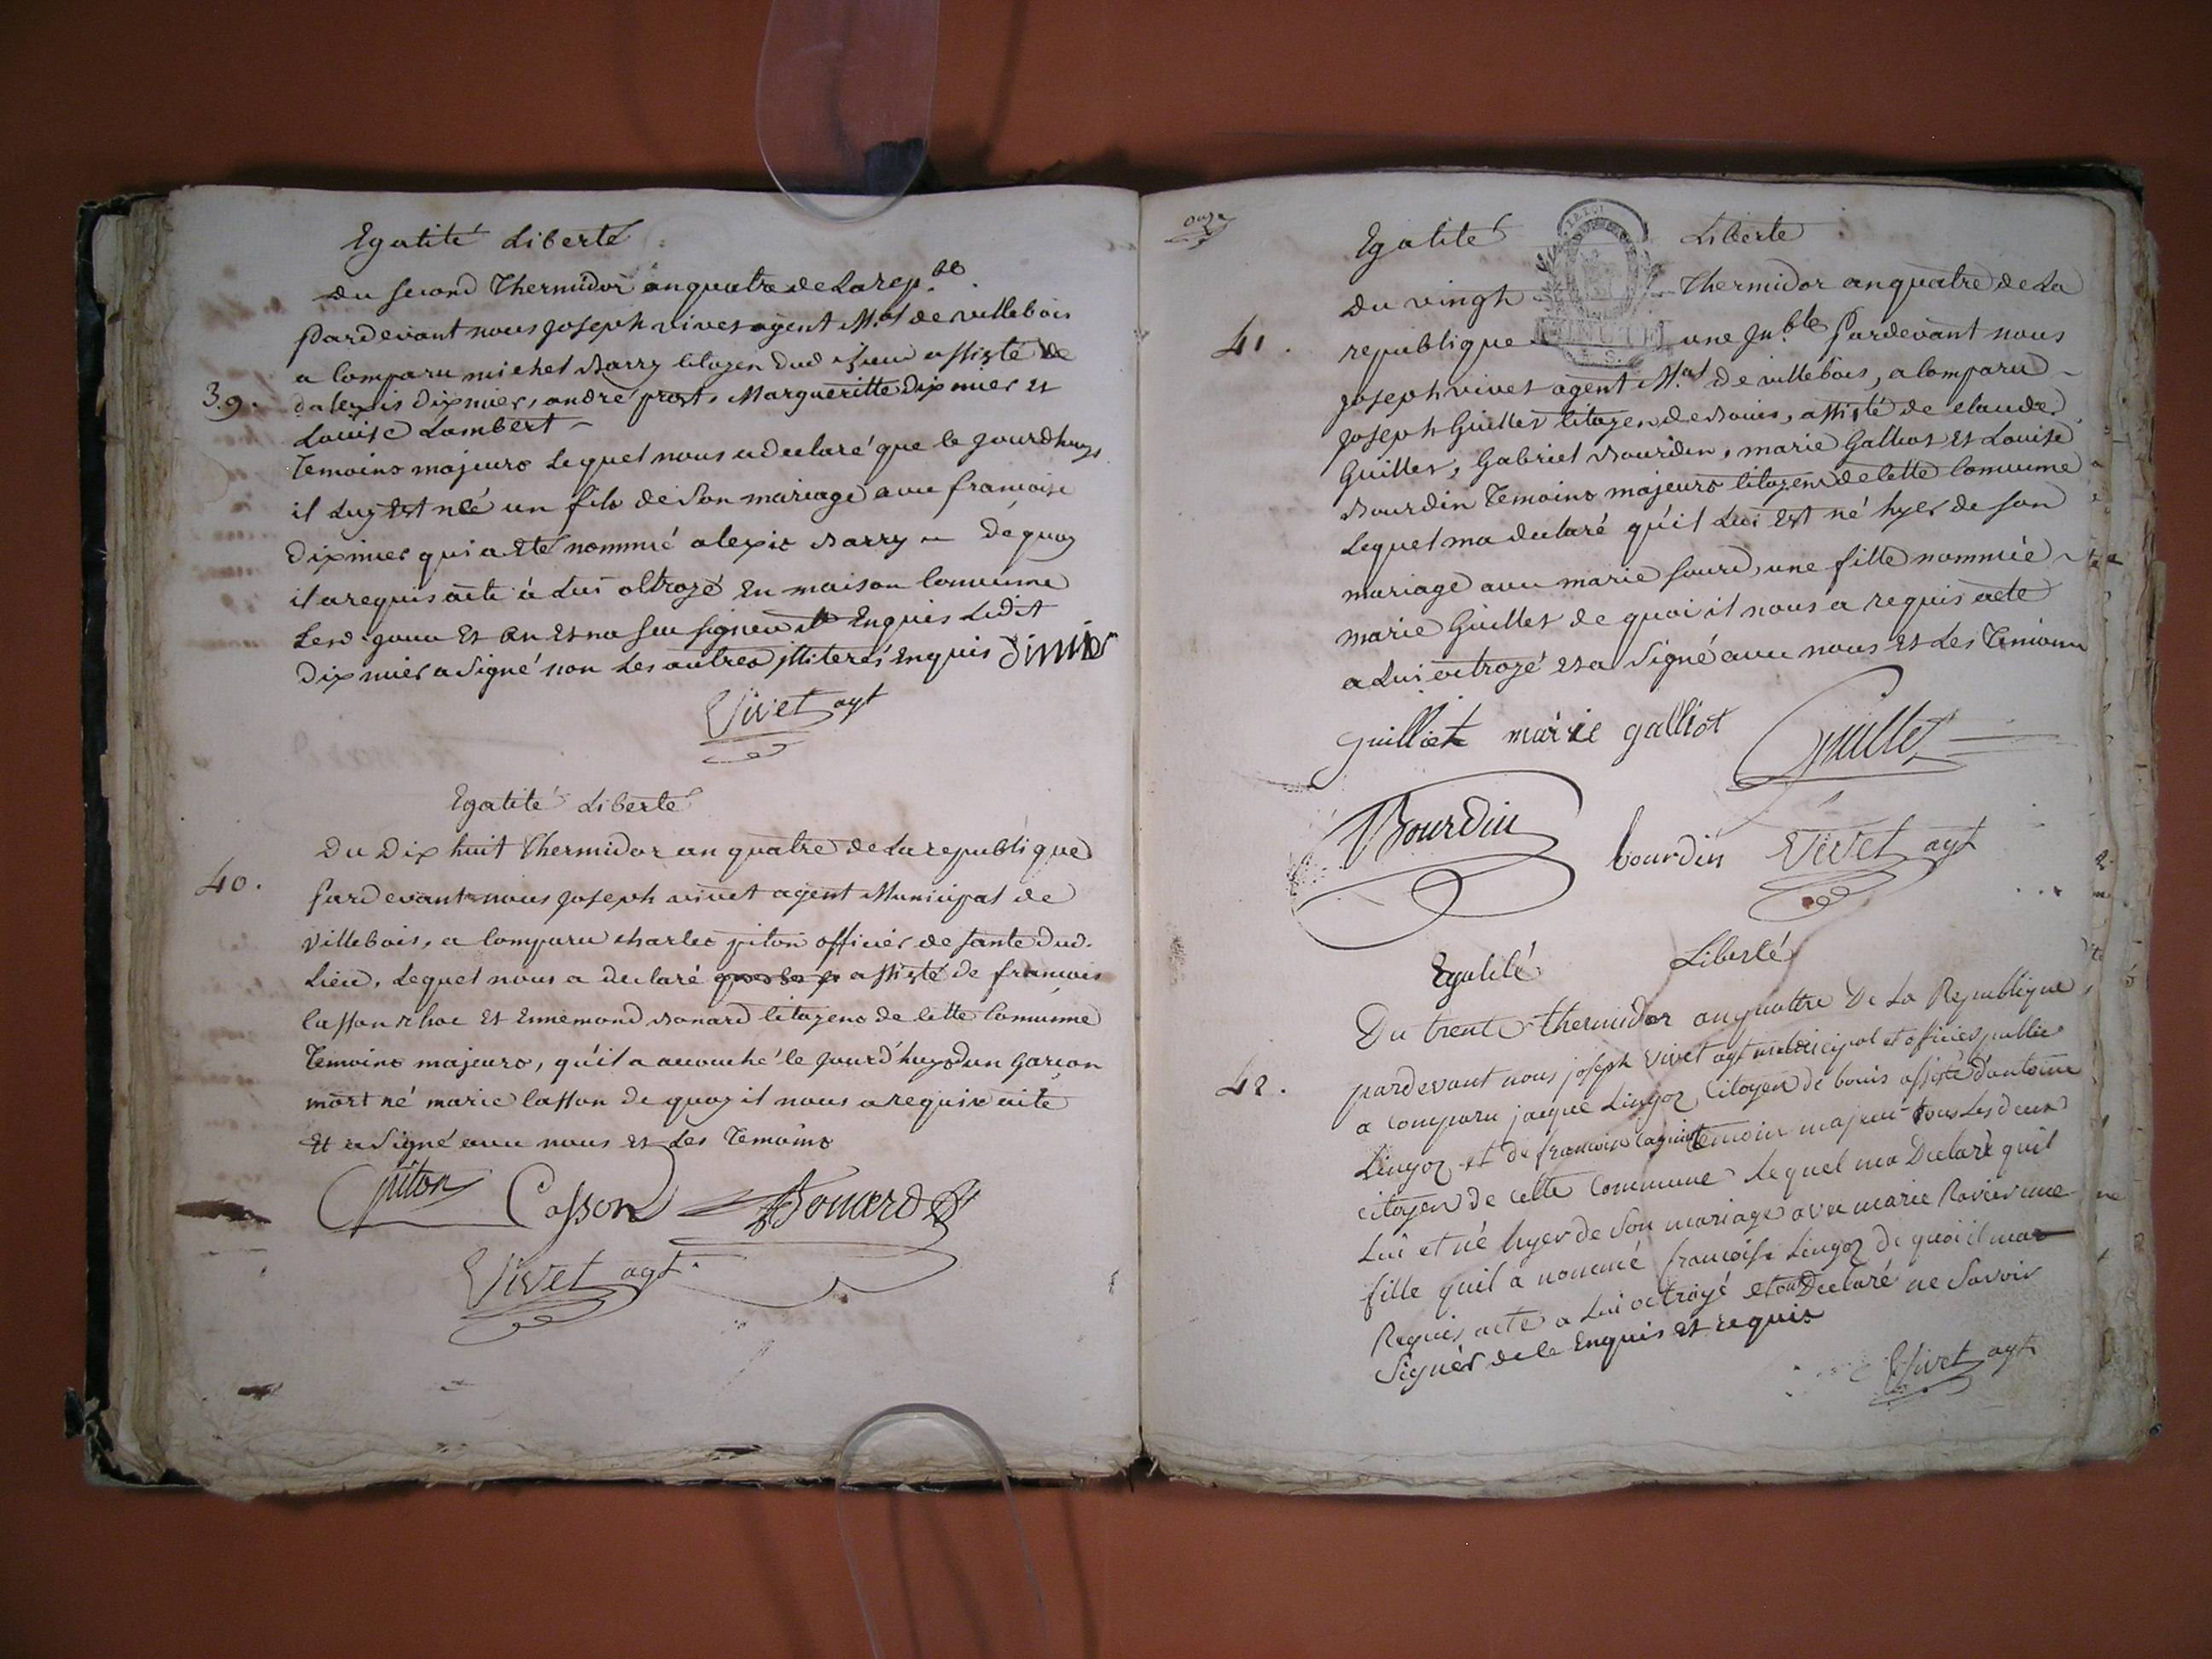 Egalité Liberté
Du second Thermidor an quatre de La rep.be
Pardevant nous joseph vivet agent M.al de villebois
a Comparu michel Barry Citoyen dud Lieu assisté de
39.
d'alexis Dixmier, andré prost, Margueritte Dixmier et
Louise Lambert
Temoins majeurs Lequel nous a declaré que le jourdhuy
il Luy Est né un fils de Son mariage avec francoise
Dixmier qui a Eté nommé alexis Barry dequoy
il a requis acte à Lui oltroyé En maison Commune
Lesd. jour Et an Et na seu signer Enquis Ledit
Dixmier a Signé non Les autres illiterés Enquis Dimier
Vivet agt
Egalité Liberté
Du Dix huit Thermidor an quatre de La republique
40.
Pardevant nous joseph vivet agent Municipal de
villebois, a Comparu charles piton officier de santé dud.
Lieu, Lequel nous a declaré assisté de francois
Casson et Ennemond Bonard Citoyens de Cette Commune
Temoins majeurs, qu'il a accouché le jourd'huy d'un garcon
mort né marie Casson de quoy il nous a requis acte
Et a Signé avec nous et Les Temoins
piton Casson Bonard
Vivet agt.
onze
Egalité Liberte
MINUTE
Du vingt Thermidor an quatre de La
41.
republique une In.ble Pardevant nous
joseph vivet agent M.al de villebois, a Comparu
joseph Guillet Citoyen de Bouis, assisté de claude
Guillet, Gabriel Bourdin, marie Galliot Et Louise
Bourdin Temoins majeurs Citoyens de Cette Commune
Lequel ma declaré qu'il Lui Est né hyer de son
mariage avec marie sourd, une fille nommée
marie Guillet de quoi il nous a requis acte
a Lui octroyé et a Signé avec nous Et Les Temoins
Guilliet marie galliot Guillet
Bourdin bourdin Vivet agt
Egalité Liberté
Du trente thermidor an quattre De La Republique,
42.
pardevant nous joseph Vivet agt municipal et officier public
a Comparu jacque Lingoz Citoyen de bouis assisté d'antoine
Lingoz et de francois temoin majeur tous Les deux
citoyen de cette Commune Lequel ma Declaré quil
Lui et né hyer de Son mariage avec marie Ravier une
fille quil a nommé francoise Lingoz de quoi il ma
Requis acte a Lui octroyé et ont Declaré ne Savoir
Signer de le Enquis et requis
Vivet agt